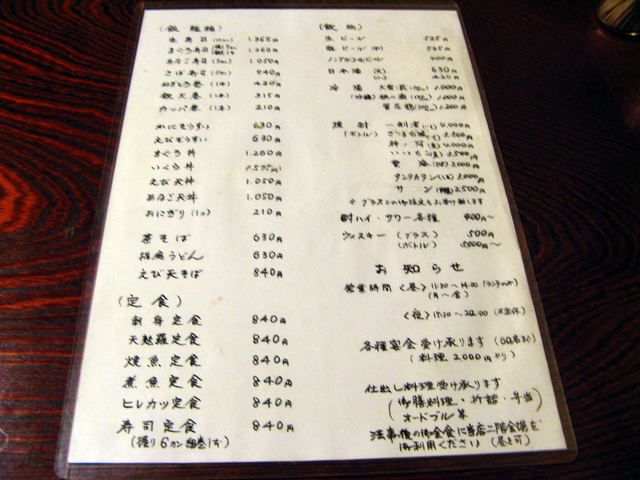 (飯 麺類)
生寿司 1.365円
まぐろ寿司 1.260円
あなご寿司 1.050
さば寿司 840円
ねぎとろ巻 (1本) 420円
鉄火巻 (1本) 315円
カッパ巻 (1本) 210円
かにぞうすい 630円
えびぞうすい 630円
まぐろ丼 1.260円
いくら丼
えび天丼 1.050円
あなご天丼 1.050
おにぎり (1コ) 210円
茶そば 630円
稲庭うどん 630円
えび天そば 840円
(定食)
刺身定食 840円
天麩羅定食 840円
焼魚定食 840円
煮魚定食 840円
ヒレカツ定食 840円
寿司定食 840円
(握り6カン 細巻1本)
(飲物)
生ビール 525円
瓶ビール (中) 525円
ノンアルコールビール 400円
日本酒 (大) 630円
(小) 420円
冷酒 1,000円
1,000円
1,200円
焼酎 4,000円
(ボトル) さつま白波
4,000円
いいちこ 3,500円
3,000円
タンタカタン 3,000円
2,500円
※グラスでの御注文もお受け致します
酎ハイ・サワー各種 400円〜
ウィスキー (グラス) 500円
(ボトル) 5,000円〜
お知らせ
営業時間 <昼> 11:30〜14:00
(月〜金)
<夜> 17:30〜22:00
各種宴会受け承ります (60名まで)
(料理 2,000円より)
仕出し料理受け承ります
(御膳料理・折詰・弁当
オードブル 等)
法事後の御会食に当店二階会場を
御利用ください